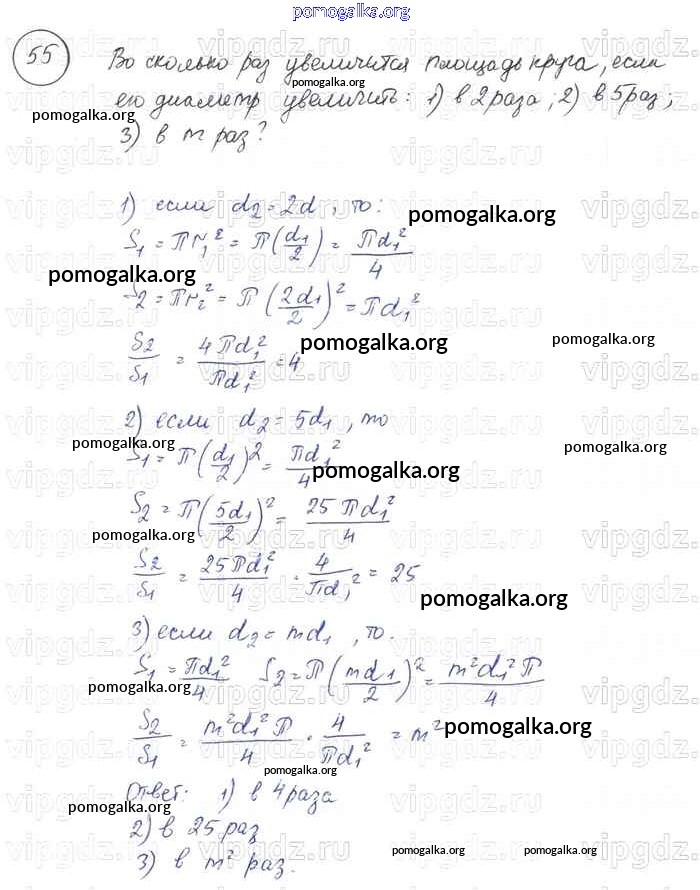 pomogalka.org
55
Во сколько раз увеличится площадь круга, если
pomogalka.org
его диаметр увеличить: 1) в 2 раза; 2) в 5 раз;
pomogalka.org
pomogalka.org
3) в m раз?
1) если d₂ = 2d, то:
pomogalka.org
S₁ = πr₁² = π(d₁/2) = πd₁²/4
pomogalka.org
S₂ = πr₂² = π(2d₁/2)² = πd₁²
pomogalka.org
pomogalka.org
S₂/S₁ = 4πd₁²/πd₁² = 4
2) если d₂ = 5d₁, то
pomogalka.org
pomogalka.org
S₁ = π(d₁/2)² = πd₁²/4
pomogalka.org
S₂ = π(5d₁/2)² = 25πd₁²/4
pomogalka.org
S₂/S₁ = 25πd₁²/4 · 4/πd₁² = 25
pomogalka.org
3) если d₂ = md₁, то.
S₁ = πd₁²/4 S₂ = π(md₁/2)² = m²d₁²π/4
pomogalka.org
S₂/S₁ = m²d₁²π/4 · 4/πd₁² = m²
pomogalka.org
pomogalka.org
Ответ: 1) в 4 раза
pomogalka.org
2) в 25 раз
3) в m² раз.
pomogalka.org
pomogalka.org
vipgdz.ru